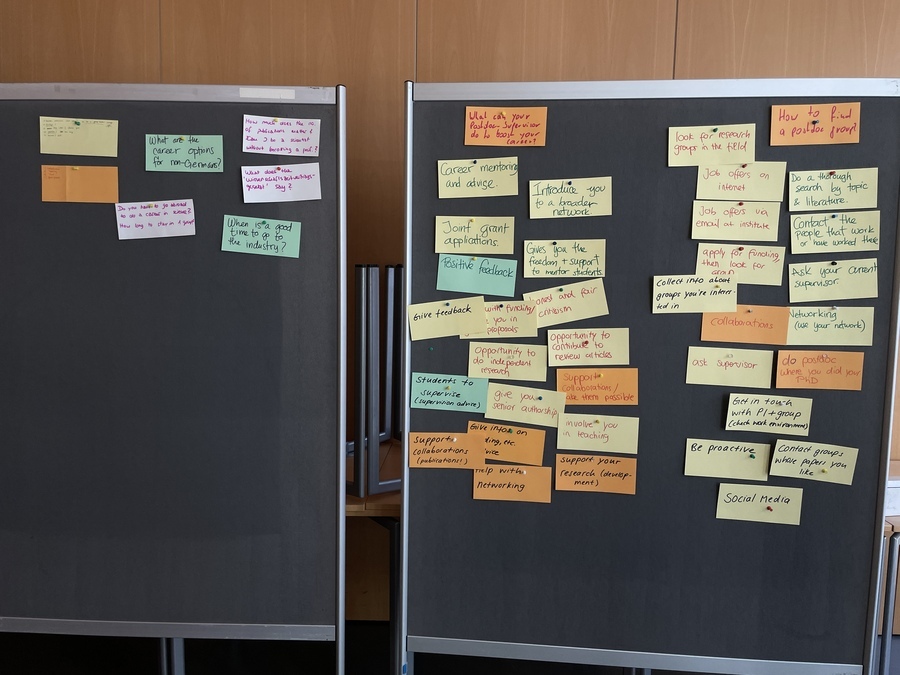 What are the
career options
for non-Germans?
How much does the no.
of publications matter
to a scientist
without
Do you have to go abroad
to do a career in science?
How long to stay in a group?
What does the
say?
When is a good
time to go to
the industry?
What can your
Postdoc Supervisor
do to boost your
career?
Career mentoring
and advise.
Introduce you
to a broader
network.
Joint grant
applications.
Gives you the
freedom + support
to mentor students
Positive feedback
Give feedback
with funding/
you in
proposals
onest and fair
criticism
Opportunity to
do independent
research
Opportunity to
contribute to
review articles
Students to
supervise
(supervision advise)
give you
senior authorship
Support
collaborations/
make them possible
involve you
in teaching
Support
collaborations
(publications!)
Give info on
ding, etc.
vice
Help with
networking
Support your
research (develop-
ment)
How to find
a postdoc group?
look for research
groups in the field
Job offers on
internet
Do a thorough
search by topic
& literature.
Job offers via
email at institute
Contact the
people that work
or have worked there
apply for funding,
then look for
group
Ask your current
supervisor.
Collect info about
groups you're interes-
ted in
collaborations
Networking
(use your network)
ask supervisor
do postdoc
where you did your
PhD
Get in touch
with PI + group
(check work environment)
Be proactive
Contact groups
whose papers you
like
Social Media